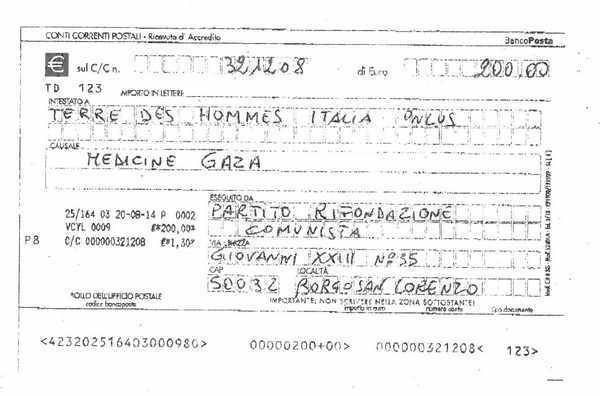 CONTI CORRENTI POSTALI - Ricevuta di Accredito BancoPosta
€ sul C/C n. 321208 di Euro 200,00
TD 123 IMPORTO IN LETTERE
INTESTATO A
TERRE DES HOMMES ITALIA ONLUS
CAUSALE
MEDICINE GAZA
ESEGUITO DA
25/164 03 20-08-14 P 0002 PARTITO RIFONDAZIONE
VCYL 0009 €*200,00* COMUNISTA
P8 C/C 000000321208 €*1,30* VIA - PIAZZA
GIOVANNI XXIII N° 35
CAP LOCALITÀ
50032 BORGO SAN LORENZO
BOLLO DELL'UFFICIO POSTALE IMPORTANTE: NON SCRIVERE NELLA ZONA SOTTOSTANTE!
codice bancoposta importo in euro numero conto tipo documento
<423202516403000980> 00000200+00> 000000321208< 123>